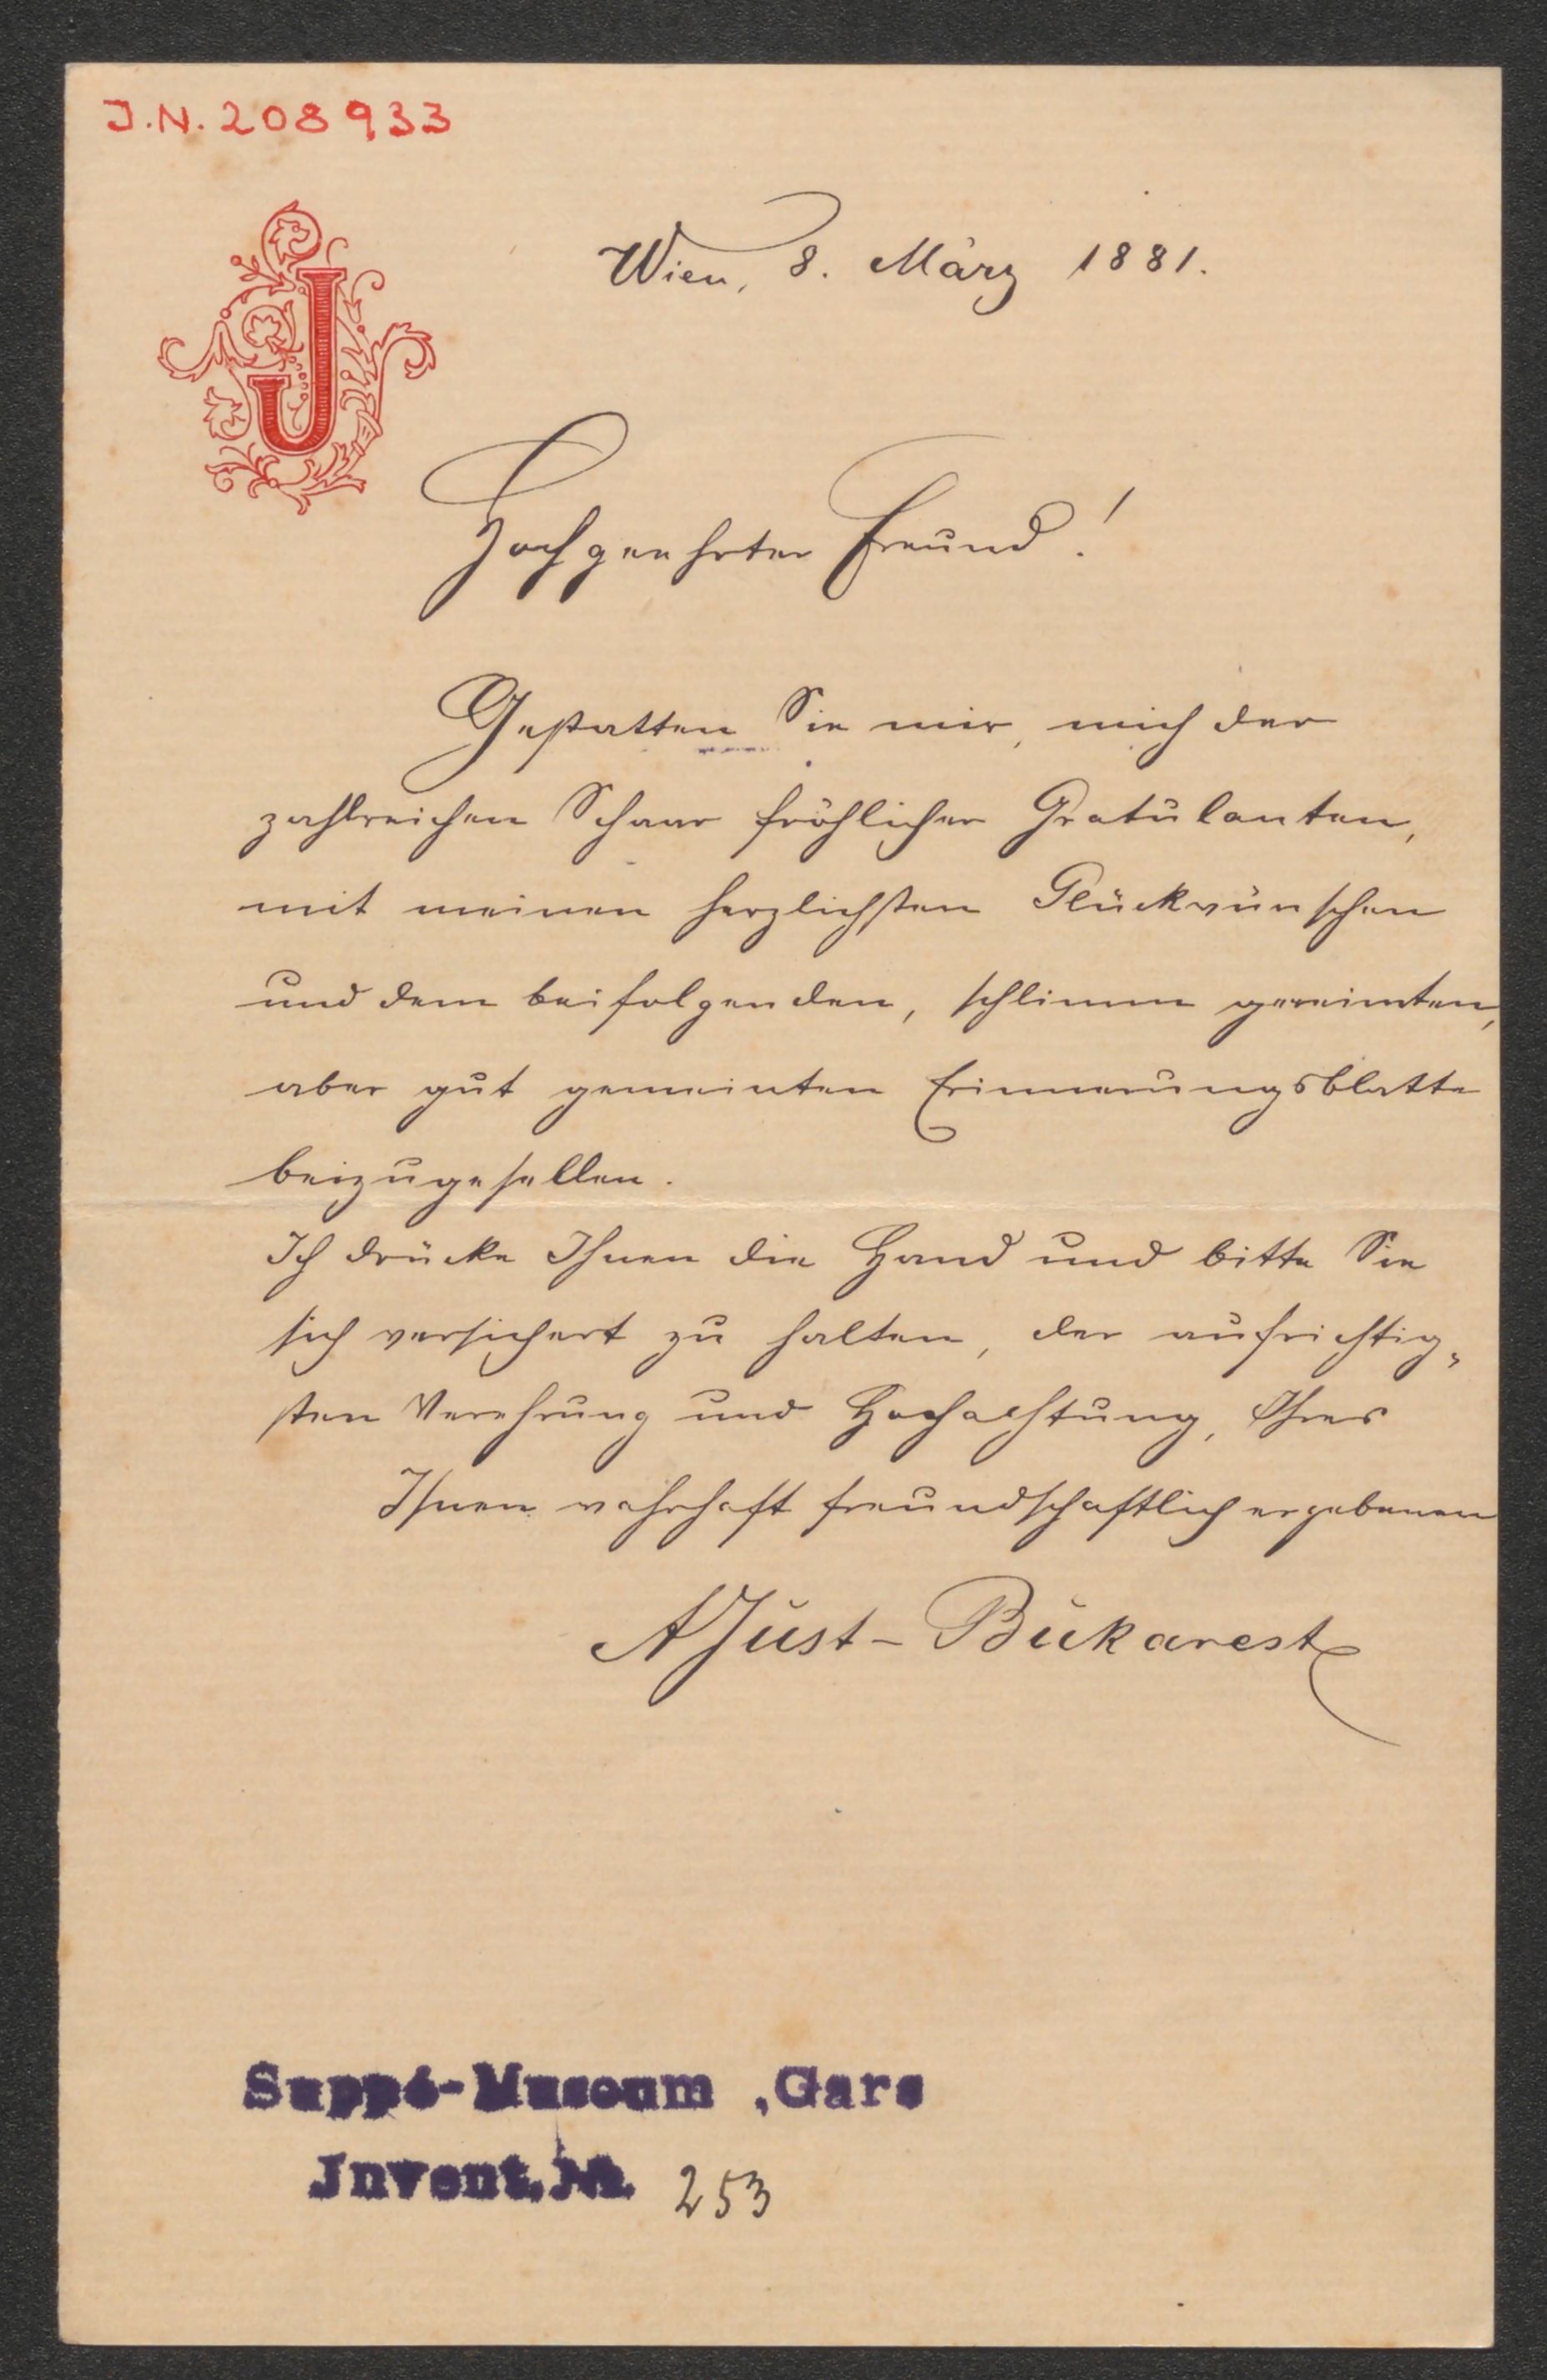 J.N. 208933
J
Wien, 8. März 1881.
Hochgeehrter Freund!
Gestatten Sie mir, mich der
zahlreichen Schaar fröhlicher Gratulanten,
mit meinen herzlichsten Glückwünschen
und dem beifolgenden, schlimm gereimten,
aber gut gemeinten Erinnerungsblatte
beizugesellen.
Ich drücke Ihnen die Hand und bitte Sie
sich versichert zu halten, der aufrichtig„
sten Verehrung und Hochachtung, Ihres
Ihnen wahrhaft freundschaftlich ergebenen
AJust-Bukarest
Suppé-Museum, Gars
Jnvent. № 253